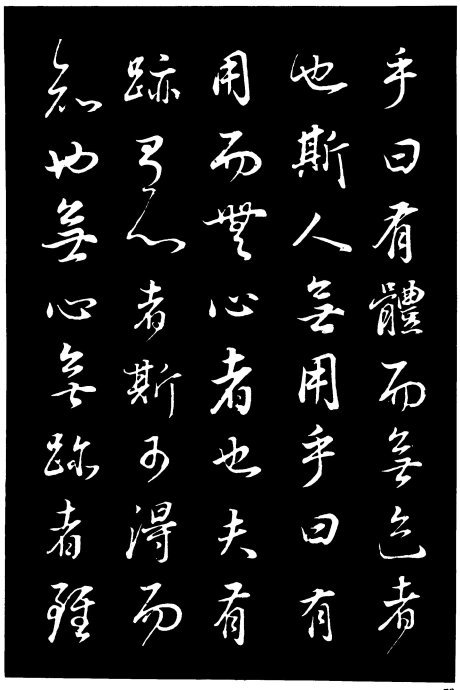 乎曰有體而無色者
也斯人無用乎曰有
用而無心者也夫有
跡有心者斯可得而
知也無心無跡者雖